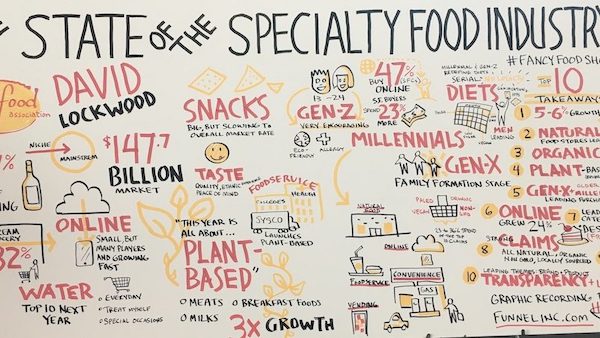 STATE OF THE SPECIALTY FOOD INDUSTRY
#FANCYFOODSH
food
association
DAVID
LOCKWOOD
NICHE
MAINSTREM
$147.7
BILLION
MARKET
ONLINE
SMALL, BUT
MANY PLAYERS
AND GROWING
FAST
32%
WATER
TOP 10 NEXT
YEAR
EVERYDAY
TREAT MYSELF
SPECIAL OCCASIONS
SNACKS
BIG, BUT SLOWING TO
OVERALL MARKET RATE
TASTE
QUALITY, ETHIC
PEACE OF MIND
"THIS YEAR IS
ALL ABOUT...
PLANT-
BASED"
MEATS
MILKS
BREAKFAST FOODS
3X GROWTH
FOODSERVICE
COLLEGES
HEALTH
SYSCO
LAUNCHES
PLANT-BASED
GEN-Z
13-24
VERY ENCOURAGING
ECO-
FRIENDLY
ALLERGY
47%
BUY
ONLINE
SF BUYERS
SPEND 23%
MORE
MILLENNIALS
GEN-X
FAMILY FORMATION STAGE
MILLENNIAL & GEN-Z
REDEFINE DIETS
"SERIAL"
DIETS
MEN
LEADING
PALEO
VEGAN
ONLINE
FOODSERVICE
CONVENIENCE
GAS
VENDING
TOP 10
TAKEAWAYS
1 5-6% GROWTH
2 NATURAL
FOOD STORES
3 ORGANIC
4 PLANT-BASED
5 GEN-X + MILLE
LEADING PURCHA
6 ONLINE
GREW 24%
7 LEAD
CATE
DES
8 STRONG
CLAIMS
ALL NATURAL, ORGANIC
NON GMO, LOCALLY SOURCED
10 LEADING THEMES: BRAND + PRODUCT
TRANSPARENCY +
GRAPHIC RECORDING
FUNNELINC.COM